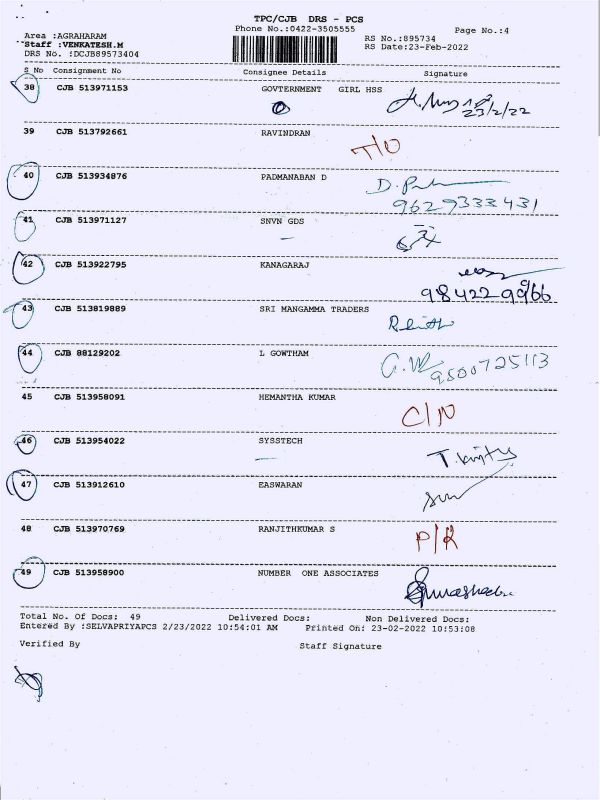 TPC/CJB DRS - PCS
Phone No.:0422-3505555
Page No.:4
Area :AGRAHARAM
RS No.:895734
Staff :VENKATESH.M
RS Date:23-Feb-2022
DRS No. :DCJB89573404
S No Consignment No Consignee Details Signature
38 CJB 513971153 GOVTERNMENT GIRL HSS
23/2/22
39 CJB 513792661 RAVINDRAN
T/O
40 CJB 513934876 PADMANABAN D
9629333431
41 CJB 513971127 SNVN GDS
42 CJB 513922795 KANAGARAJ
9842299966
43 CJB 513819889 SRI MANGAMMA TRADERS
44 CJB 88129202 L GOWTHAM
9500725113
45 CJB 513958091 HEMANTHA KUMAR
C/N
46 CJB 513954022 SYSSTECH
47 CJB 513912610 EASWARAN
48 CJB 513970769 RANJITHKUMAR S
P/R
49 CJB 513958900 NUMBER ONE ASSOCIATES
Total No. Of Docs: 49 Delivered Docs: Non Delivered Docs:
Entered By :SELVAPRIYAPCS 2/23/2022 10:54:01 AM Printed On: 23-02-2022 10:53:08
Verified By Staff Signature